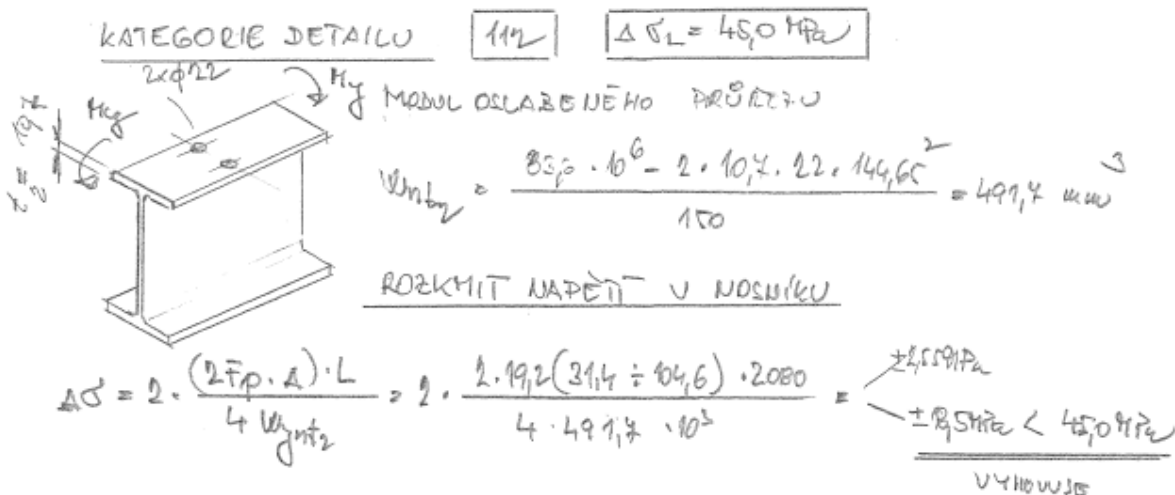 KATEGORIE DETAILU 112 Δσ_L = 45,0 MPa
2xφ22
My
My
MODUL OSLABENÉHO PRŮŘEZU
= (83,6 · 10^6 - 2 · 10,7 · 22 · 144,65^2) / 150 = 491,7 mm^3
ROZKMIT NAPĚTÍ V NOSNÍKU
Δσ = 2 · (2Fp · Δ) · L / 4 Wynt2 = 2 · 2 · 19,2 (31,4 ÷ 104,6) · 2080 / 4 · 491,7 · 10^3 =
< 45,0 MPa
VYHOVUJE